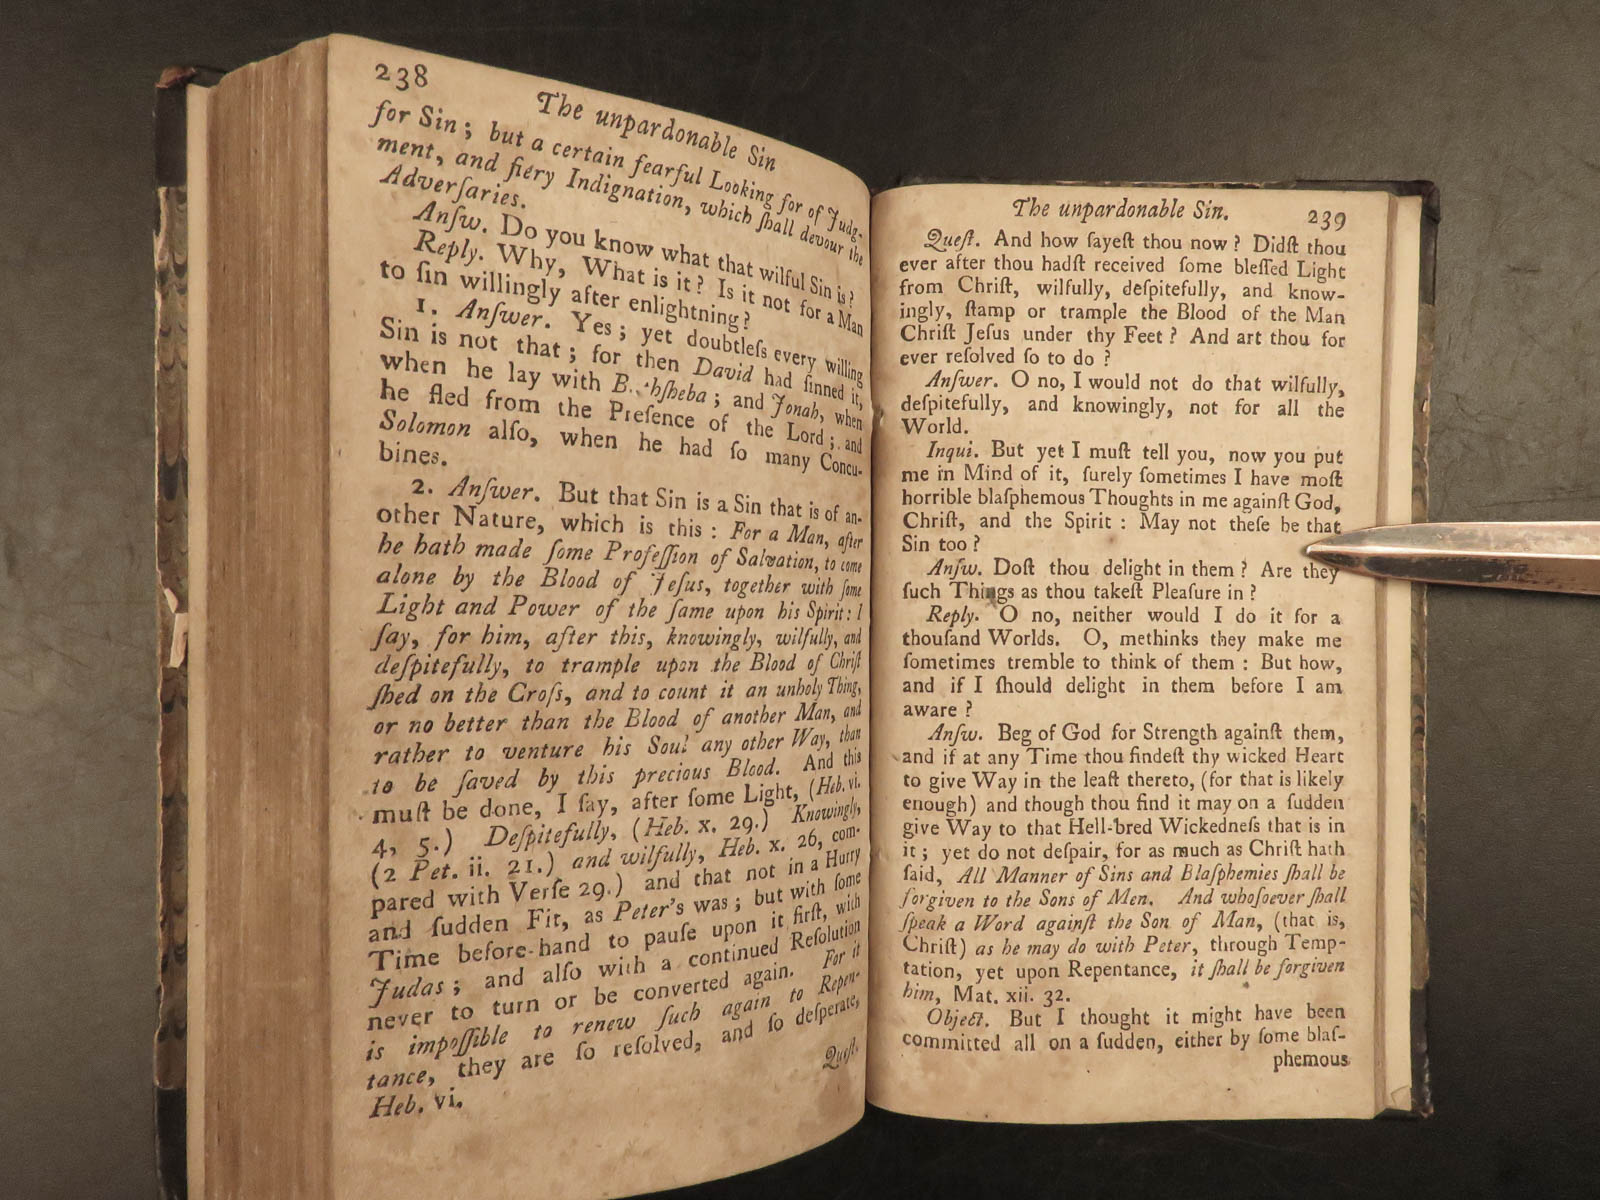 238
The unpardonable Sin
for Sin; but a certain fearful Looking for of Judg-
ment, and fiery Indignation, which ſhall devour the
Adverſaries.
Anſw. Do you know what that wilful Sin is?
Reply. Why, What is it? Is it not for a Man
to ſin willingly after enlightning?
1. Anſwer. Yes; yet doubtleſs every willing
Sin is not that; for then David had ſinned it,
when he lay with B hſheba; and Jonah, when
he fled from the Preſence of the Lord; and
Solomon alſo, when he had ſo many Concu-
bines.
2. Anſwer. But that Sin is a Sin that is of an-
other Nature, which is this: For a Man, after
he hath made ſome Profeſſion of Salvation, to come
alone by the Blood of Jeſus, together with ſome
Light and Power of the ſame upon his Spirit: I
ſay, for him, after this, knowingly, wilfully, and
deſpitefully, to trample upon the Blood of Chriſt
ſhed on the Croſs, and to count it an unholy Thing,
or no better than the Blood of another Man, and
rather to venture his Soul any other Way, than
to be ſaved by this precious Blood. And this
muſt be done, I ſay, after ſome Light, (Heb. vi.
4, 5.) Deſpitefully, (Heb. x. 29.) Knowingly,
(2 Pet. ii. 21.) and wilfully, Heb. x. 26, com-
pared with Verſe 29.) and that not in a Hurry
and ſudden Fit, as Peter's was; but with ſome
Time before-hand to pauſe upon it firſt, with
Judas; and alſo with a continued Reſolution
never to turn or be converted again. For it
is impoſſible to renew ſuch again to Repen-
tance, they are ſo reſolved, and ſo deſperate,
Heb. vi.
Queſt.
The unpardonable Sin. 239
Queſt. And how ſayeſt thou now? Didſt thou
ever after thou hadſt received ſome bleſſed Light
from Chriſt, wilfully, deſpitefully, and know-
ingly, ſtamp or trample the Blood of the Man
Chriſt Jeſus under thy Feet? And art thou for
ever reſolved ſo to do?
Anſwer. O no, I would not do that wilfully,
deſpitefully, and knowingly, not for all the
World.
Inqui. But yet I muſt tell you, now you put
me in Mind of it, ſurely ſometimes I have moſt
horrible blaſphemous Thoughts in me againſt God,
Chriſt, and the Spirit: May not theſe be that
Sin too?
Anſw. Doſt thou delight in them? Are they
ſuch Things as thou takeſt Pleaſure in?
Reply. O no, neither would I do it for a
thouſand Worlds. O, methinks they make me
ſometimes tremble to think of them: But how,
and if I ſhould delight in them before I am
aware?
Anſw. Beg of God for Strength againſt them,
and if at any Time thou findeſt thy wicked Heart
to give Way in the leaſt thereto, (for that is likely
enough) and though thou find it may on a ſudden
give Way to that Hell-bred Wickedneſs that is in
it; yet do not deſpair, for as much as Chriſt hath
ſaid, All Manner of Sins and Blaſphemies ſhall be
forgiven to the Sons of Men. And whoſoever ſhall
ſpeak a Word againſt the Son of Man, (that is,
Chriſt) as he may do with Peter, through Temp-
tation, yet upon Repentance, it ſhall be forgiven
him, Mat. xii. 32.
Object. But I thought it might have been
committed all on a ſudden, either by ſome blaſ-
phemous